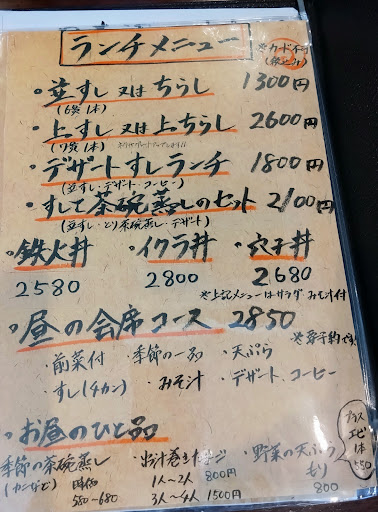 ランチメニュー
※カード不可
(税込み)
・並すし又はちらし 1300円
(6貫 1本)
・上すし又は上ちらし 2600円
(7貫 1本)
・デザートすしランチ 1800円
(並すし・デザート・コーヒー)
・すしと茶碗蒸しのセット 2100円
(並すし・とり茶碗蒸し・デザート)
・鉄火丼 ・イクラ丼 ・穴子丼
2580 2800 2680
※上記メニューはサラダ・みそ汁付
・昼の会席コース 2850
※要予約です
・前菜付 ・季節の一品 ・天ぷら
・すし(4カン) ・みそ汁 ・デザート、コーヒー
・お昼のひと品
季節の茶碗蒸し
(カニなど) 時価
580〜680
・出汁巻きたまご
1人〜2人 800円
3人〜4人 1500円
・野菜の天ぷら
もり
800
プラス
エビ
1本
550